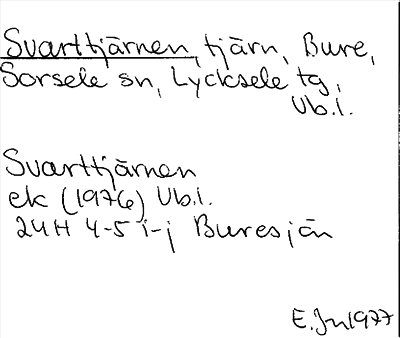 Svarttjärnen, tjärn, Bure,
Sorsele sn, Lycksele tg,
Vb.l.
Svarttjärnen
ek (1976) Vb.l.
24H 4-5 i-j Buresjön
E.Jn 1977